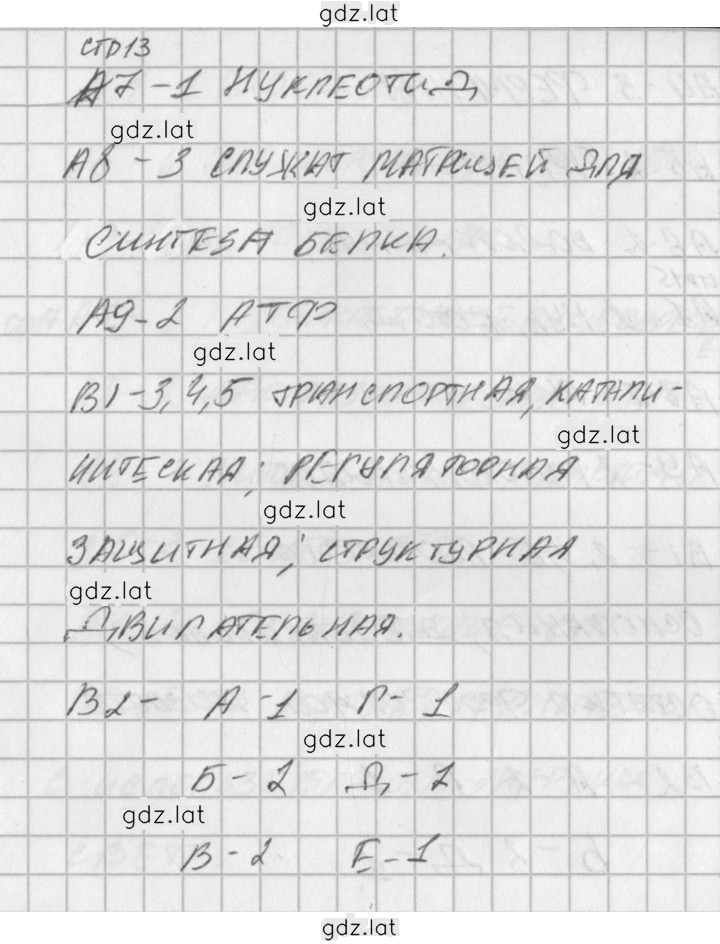 gdz.lat
стр13
А7-1 НУКЛЕОТИД
gdz.lat
А8-3 СЛУЖАТ МАТРИЦЕЙ ДЛЯ
gdz.lat
СИНТЕЗА БЕЛКА.
А9-2 АТФ
gdz.lat
В1-3,4,5 ТРАНСПОРТНАЯ, КАТАЛИ-
gdz.lat
ИТЕСКАЯ; РЕГУЛЯТОРНАЯ
gdz.lat
ЗАЩИТНАЯ; СТРУКТУРНАЯ
gdz.lat
ДВИГАТЕЛЬНАЯ.
В2- А-1 Г-1
gdz.lat
Б-2 Д-2
gdz.lat
В-2 Е-1
gdz.lat